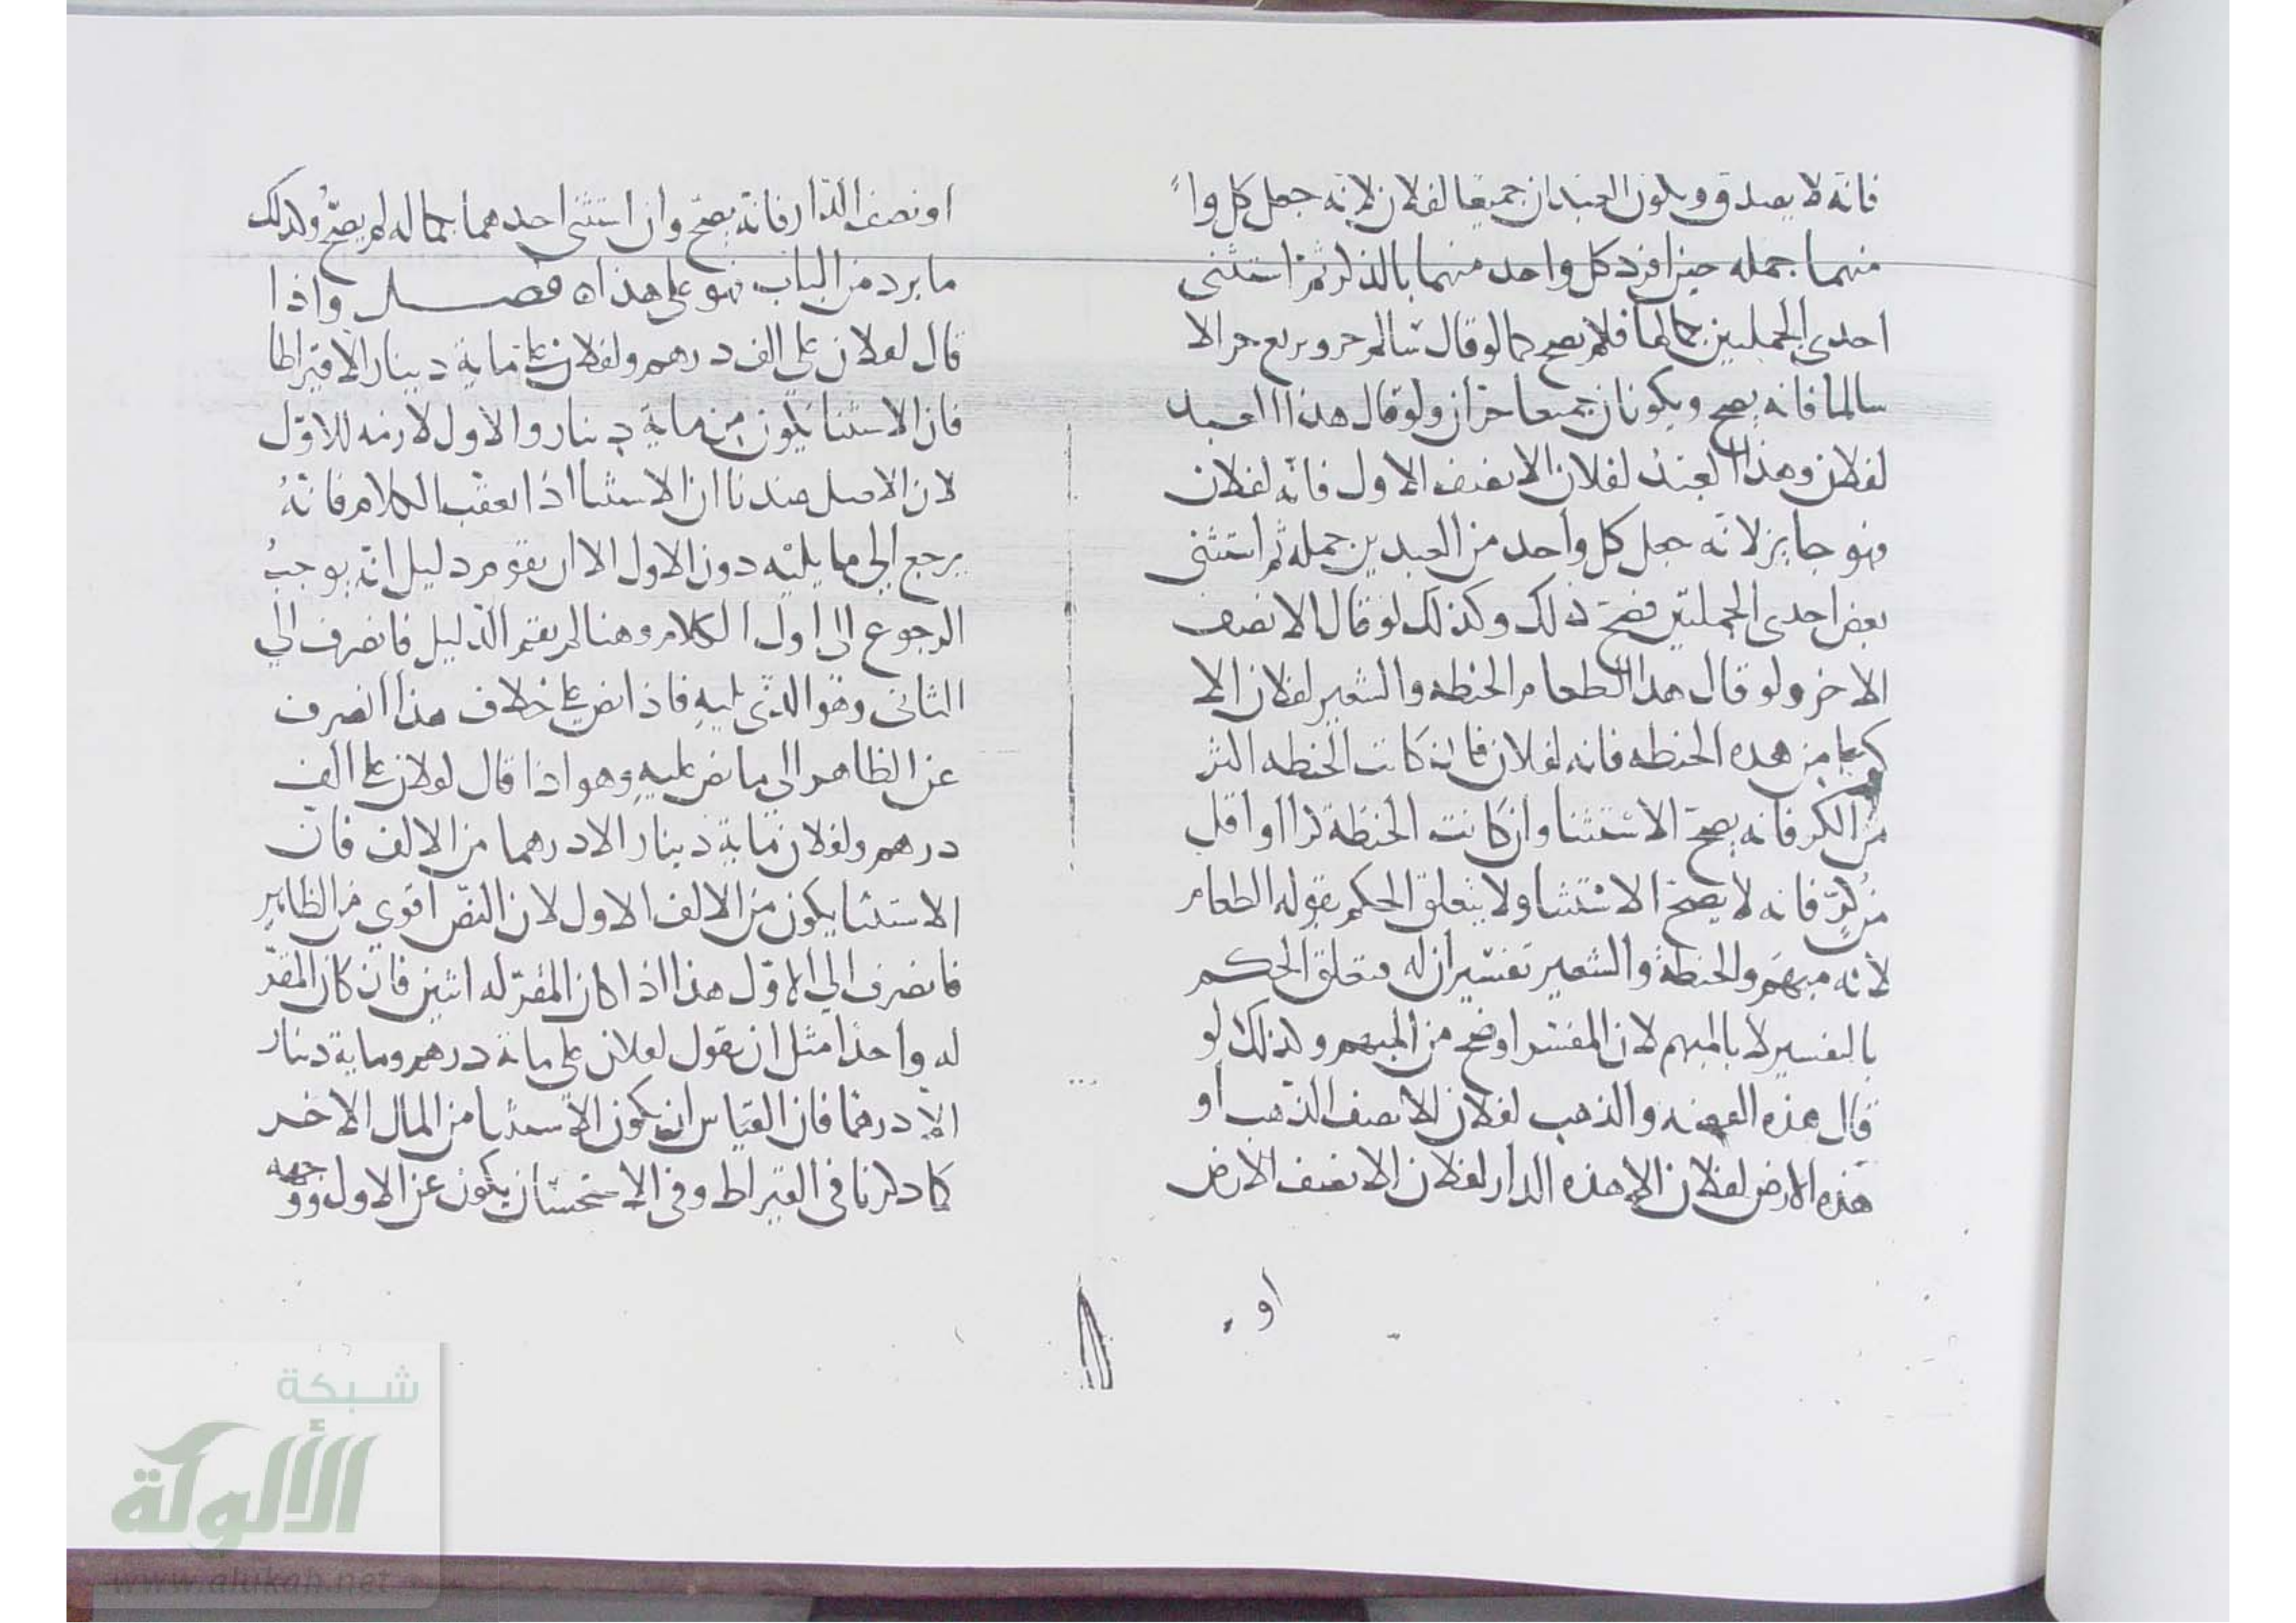 فانه لا يصدق ويكون العبدان جميعا لفلان لانه جعل كل وا
منهما جمله حين افرد كل واحد منهما بالذكر ثم استثنى
احدى الجملتين بكمالها فلم يصح كما لو قال سالم حر وبريع حر الا
سالما فانه يصح ويكونان جميعا حران ولو قال هذا العبد
لفلان وهذا العبد لفلان الا نصف الاول فانه لفلان
فهو جايز لانه جعل كل واحد من العبدين جمله ثم استثنى
بعض احدى الجملتين فصح ذلك وكذلك لو قال الا نصف
الاخر ولو قال هذا الطعام الحنطه والشعير لفلان الا
كرا من هذه الحنطه فانه لفلان فان كانت الحنطه اكثر
من الكر فانه يصح الاستثنا وان كانت الحنطة كرا او اقل
من كرّ فانه لا يصح الاستثنا ولا يتعلق الحكم بقوله الطعام
لانه مبهم والحنطة والشعير تفسيران له فتعلق الحكم
بالتفسير لا بالمبهم لان المفسر اوضح من المبهم وكذلك لو
قال هذه الفضه والذهب لفلان الا نصف الذهب او
هذه الارض لفلان الا هذه الدار لفلان الا نصف الارض
او
او نصف الدار فانه يصح وان استثنى احدهما بكماله لم يصحّ وكذلك
ما يرد من الباب فهو على هذا ه فصل واذا
قال لفلان علي الف درهم ولفلان علي ماية دينار الا قيراطا
فان الاستثنا يكون من ماية دينار والاول لازمه للاوّل
لان الاصل عندنا ان الاستثنا اذا تعقب الكلام فانهُ
يرجع الي ما يليه دون الاول الا ان يقوم دليل انه يوجبُ
الرجوع الى اول الكلام وهنا لم يقم الدليل فانصرف الي
الثاني وهو الذي يليه فاذا نص على خلاف هذا انصرف
عن الظاهر الى ما نص عليه وهو اذا قال لفلان على الف
درهم ولفلان ماية دينار الا درهما من الالف فان
الاستثنا يكون من الالف الاول لان النص اقوى من الظاهر
فانصرف الي الاوّل هذا اذا كان المقرّ له اثنين فان كان المقرّ
له واحدا مثل ان يقول لفلان علي مائه درهم وماية دينار
الا درهما فان القياس ان يكون الاستثنا من المال الاخر
كما ذكرنا في القيراط وفي الاستحسان يكون عن الاول ووجهه
شبكة
الألوكة
www.alukah.net